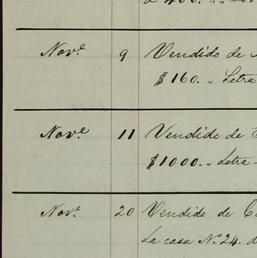 Nov.e 9 Vendido de
$160. „ Letra
Nov.e 11 Vendido de
$1000. „ Letra
Nov.e 20 Vendido de
La casa No. 24. d